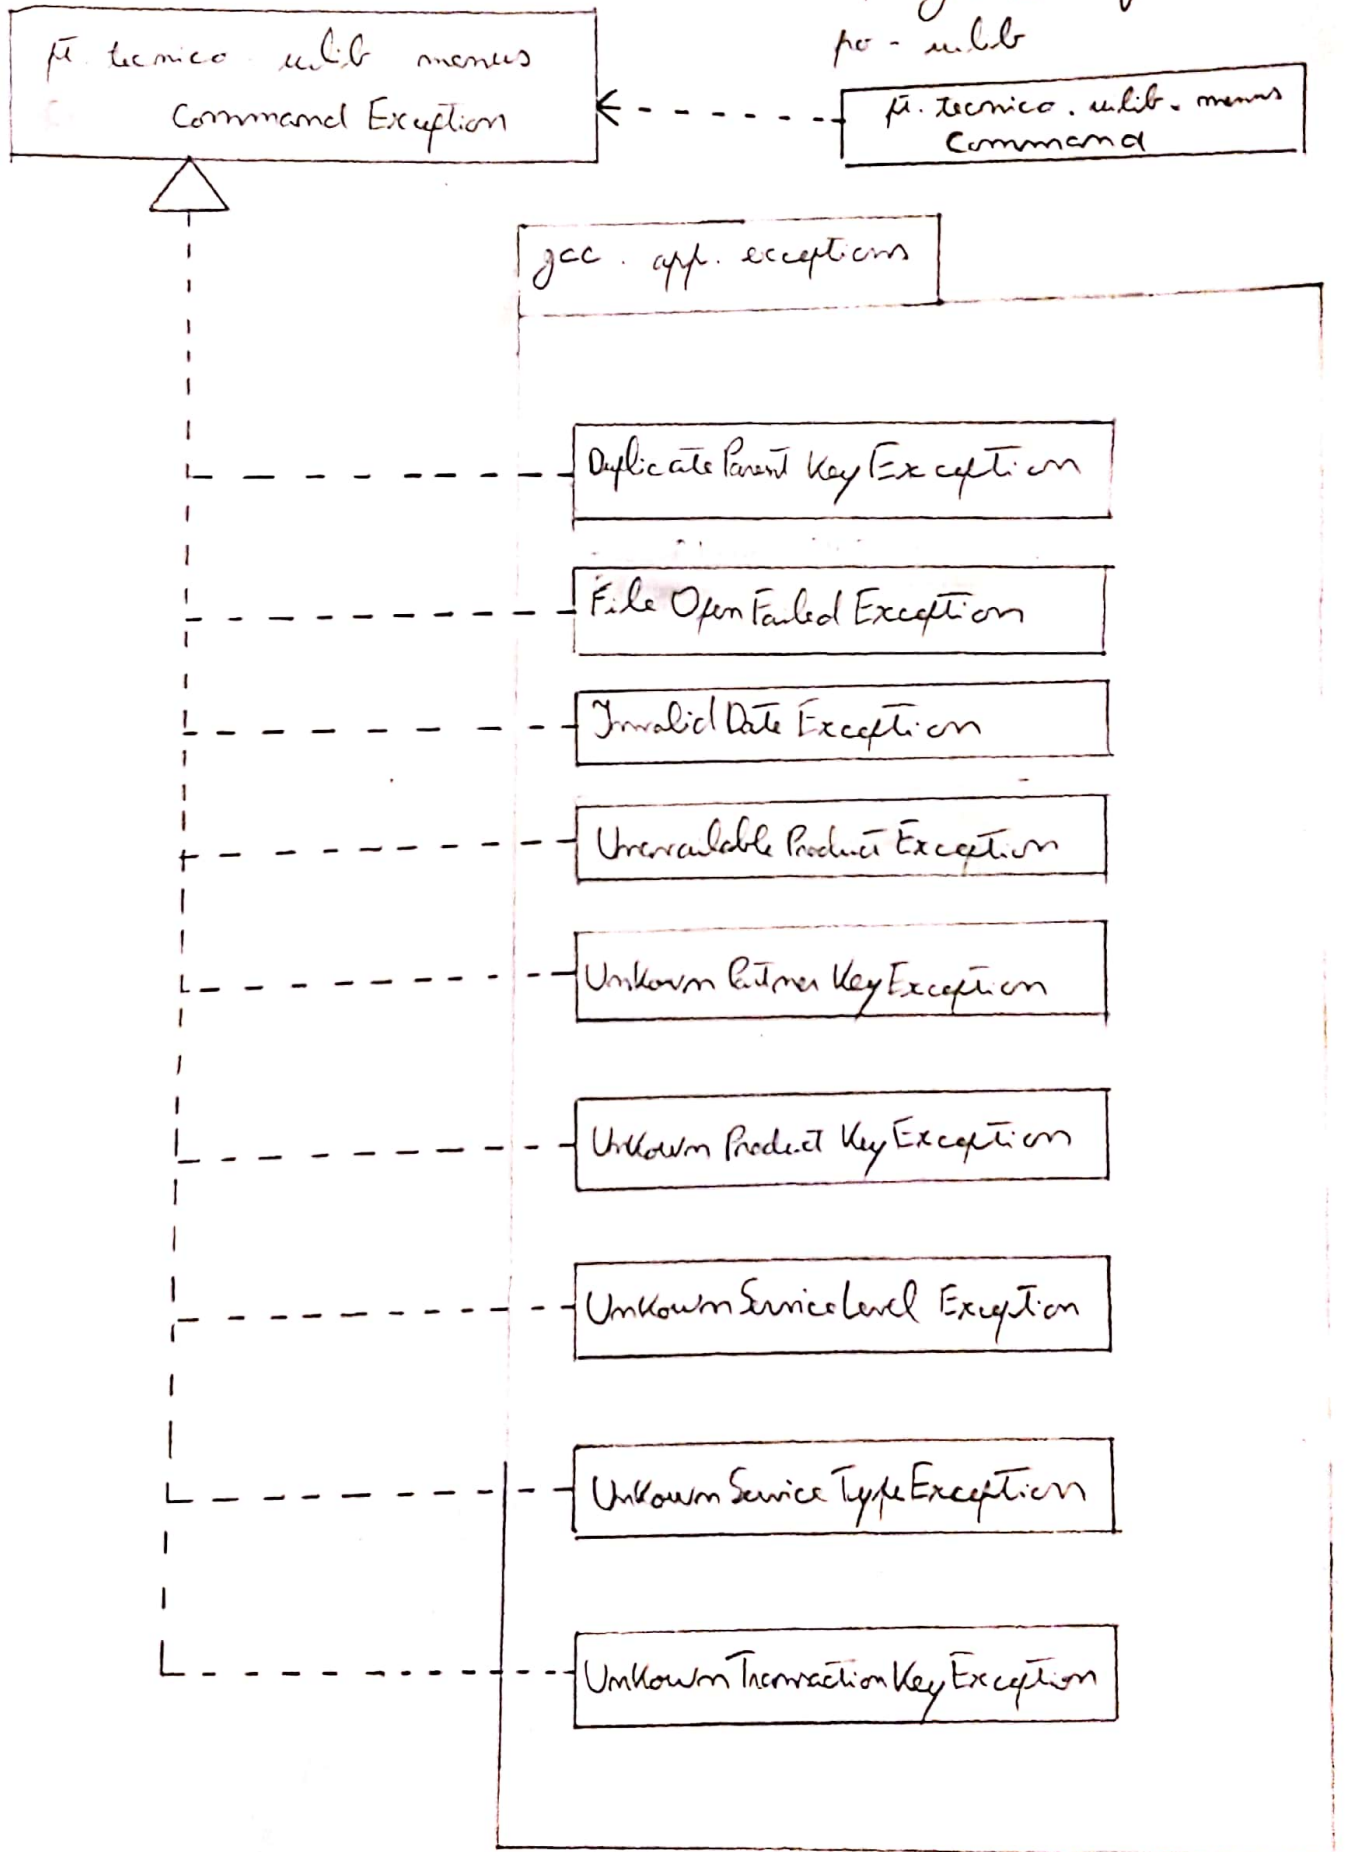 po - uilib
pt. tecnico uilib menus
Command Exception
pt. tecnico. uilib. menus
Command
gcc. app. exceptions
Duplicate Parent Key Exception
File Open Failed Exception
Invalid Date Exception
Unavailable Product Exception
Unkown Partner Key Exception
Unkown Product Key Exception
Unkown Service Level Exception
Unkown Service Type Exception
Unkown Transaction Key Exception